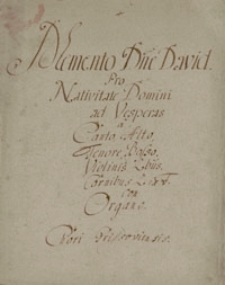 Memento Dñe David.
Pro
Nativitate Domini
ad Vesperas
a
Canto, Alto,
Tenore, Basso,
Violinis 2bus
Cornibus
con
Organo.
Chori